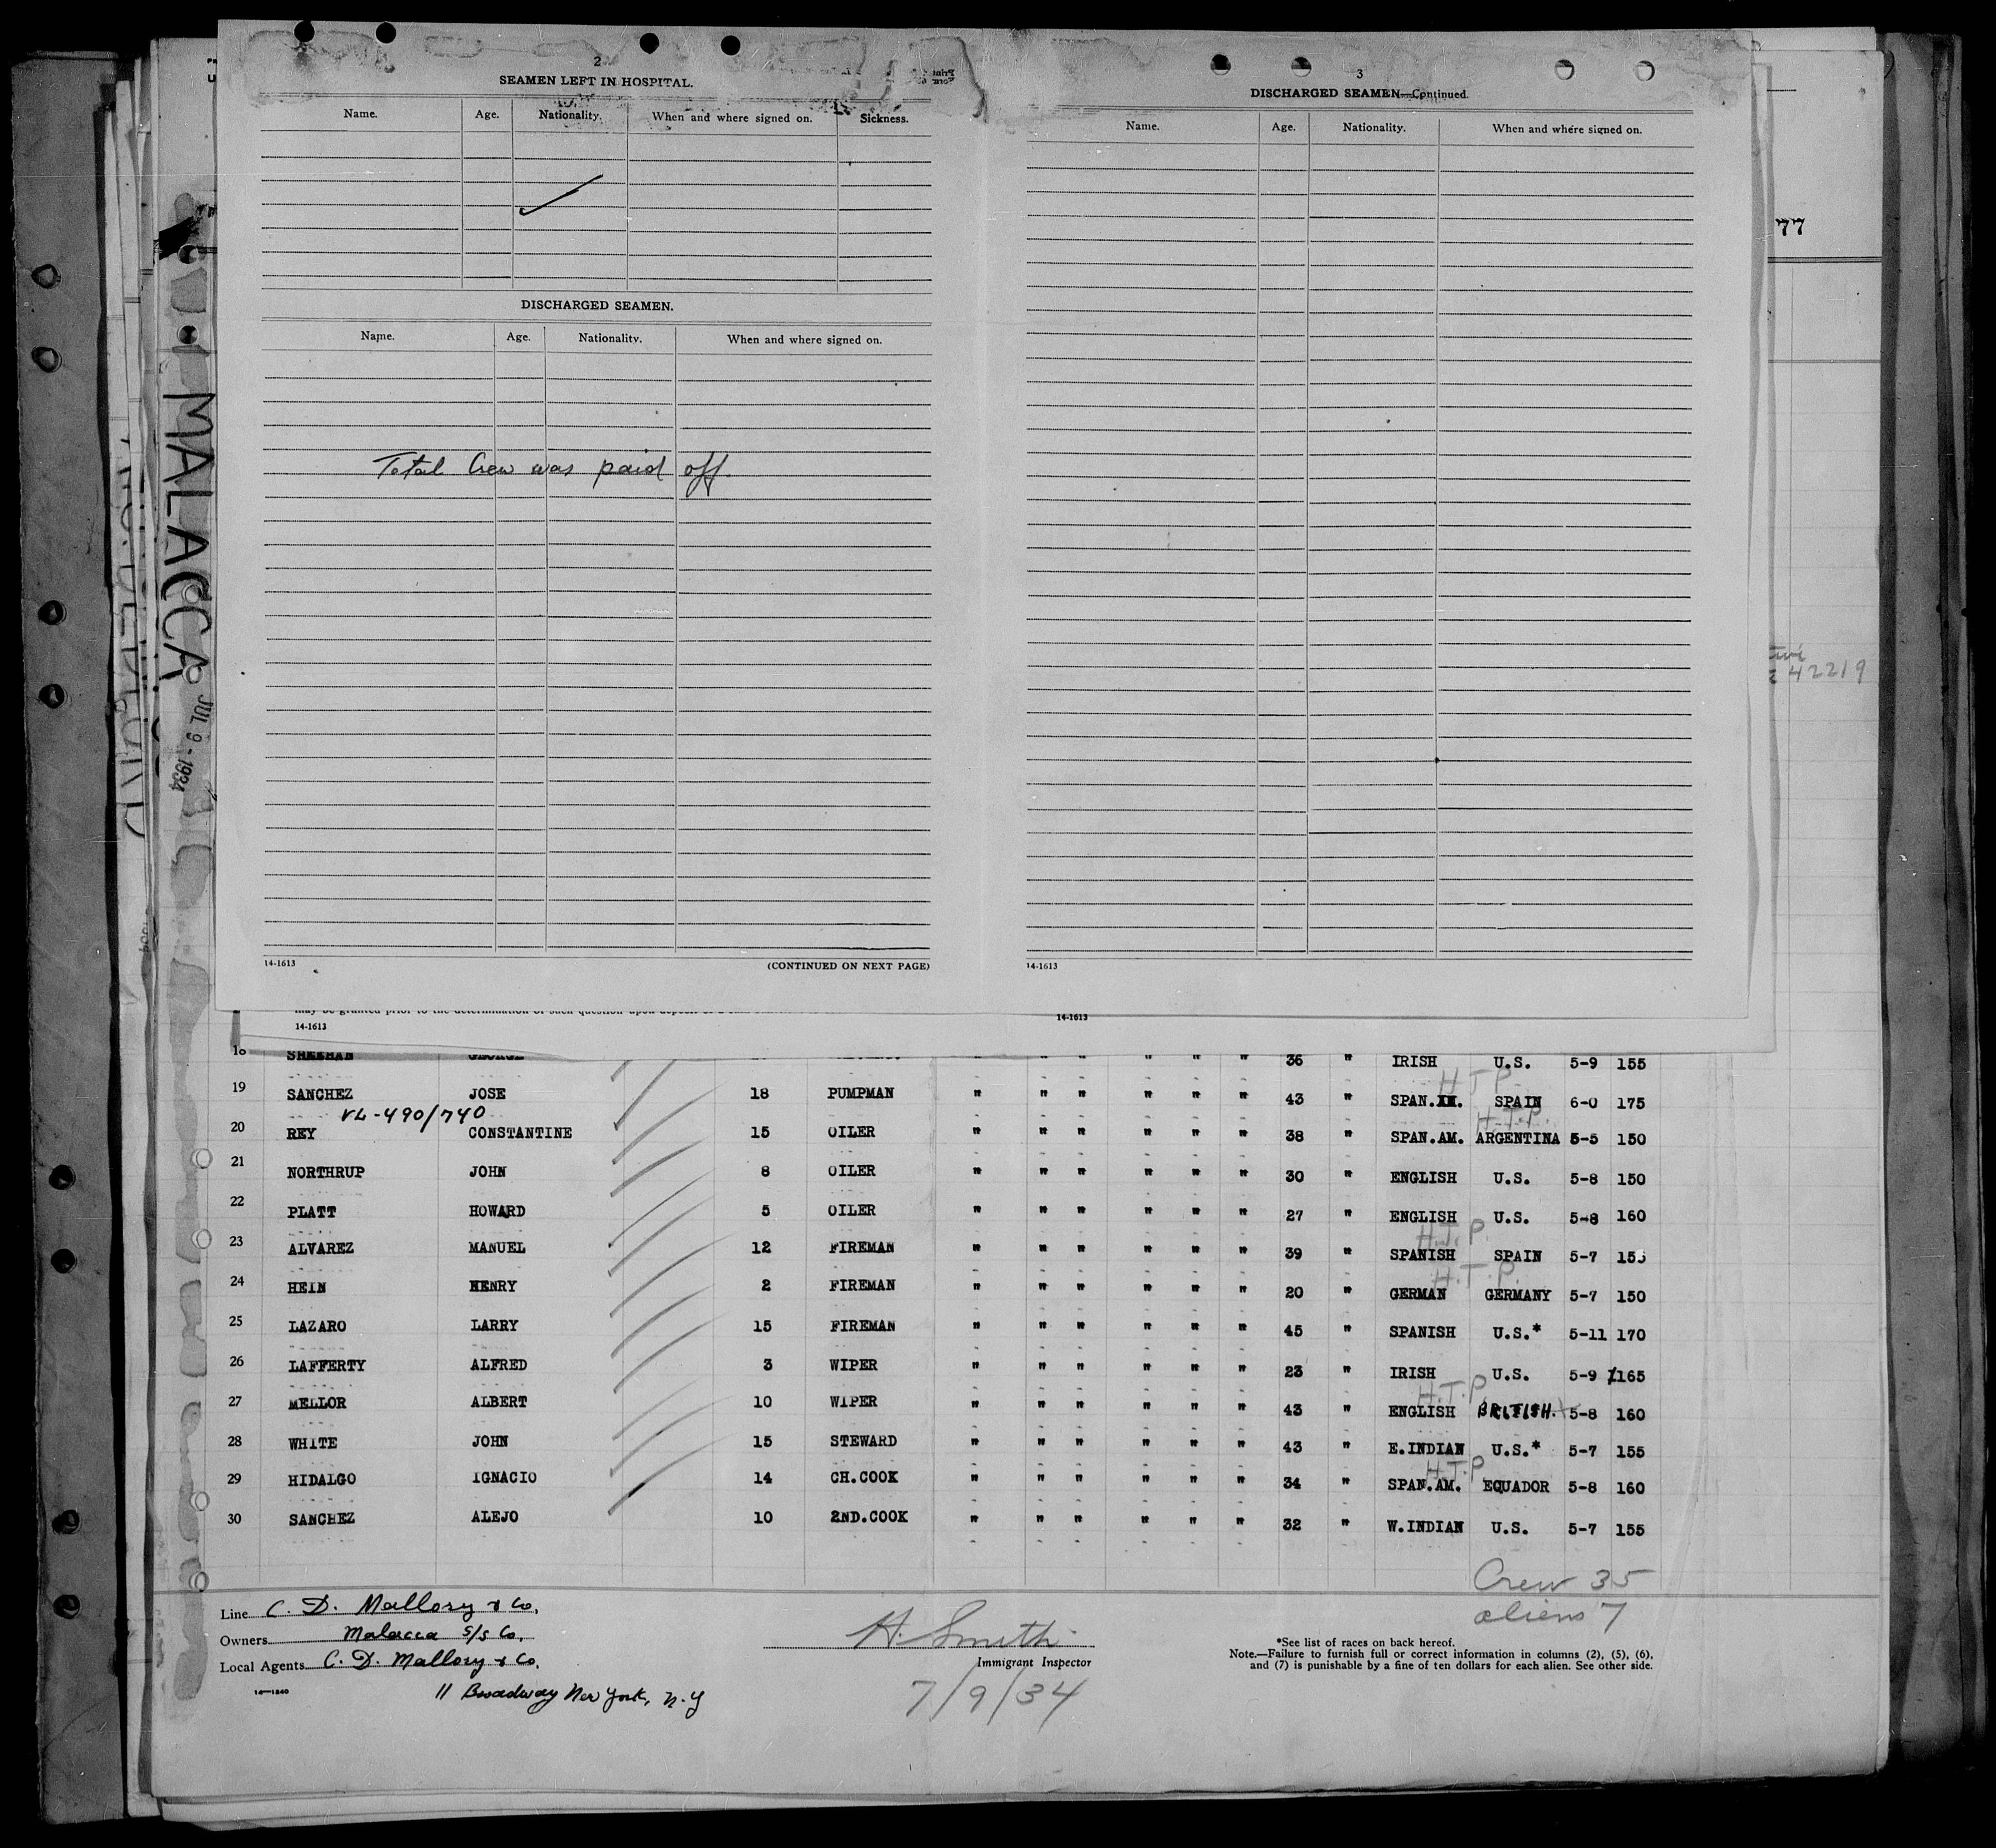 2
SEAMEN LEFT IN HOSPITAL.
Name. Age. Nationality. When and where signed on. Sickness.
DISCHARGED SEAMEN.
Name. Age. Nationality. When and where signed on.
Total Crew was paid off.
14-1613 (CONTINUED ON NEXT PAGE)
3
DISCHARGED SEAMEN—Continued.
Name. Age. Nationality. When and where signed on.
14-1613
77
42219
MALACCA
JUL 9 - 1934
may be granted prior to the determination of such question upon deposit of a
14-1613
14-1613
18 SHEEHAN GEORGE " " " " " 36 " IRISH U.S. 5-9 155
H.T.P.
19 SANCHEZ JOSE 18 PUMPMAN " " " " " " 43 " SPAN. SPAIN 6-0 175
VL-490/740
H.T.P.
20 REY CONSTANTINE 15 OILER " " " " " " 38 " SPAN.AM. ARGENTINA 5-5 150
21 NORTHRUP JOHN 8 OILER " " " " " " 30 " ENGLISH U.S. 5-8 150
22 PLATT HOWARD 5 OILER " " " " " " 27 " ENGLISH U.S. 5-8 160
H.T.P.
23 ALVAREZ MANUEL 12 FIREMAN " " " " " " 39 " SPANISH SPAIN 5-7 155
H.T.P.
24 HEIN HENRY 2 FIREMAN " " " " " " 20 " GERMAN GERMANY 5-7 150
25 LAZARO LARRY 15 FIREMAN " " " " " " 45 " SPANISH U.S.* 5-11 170
26 LAFFERTY ALFRED 3 WIPER " " " " " " 23 " IRISH U.S. 5-9 165
H.T.P.
27 MELLOR ALBERT 10 WIPER " " " " " " 43 " ENGLISH BRITISH. 5-8 160
28 WHITE JOHN 15 STEWARD " " " " " " 43 " E.INDIAN U.S.* 5-7 155
H.T.P.
29 HIDALGO IGNACIO 14 CH.COOK " " " " " " 34 " SPAN.AM. EQUADOR 5-8 160
30 SANCHEZ ALEJO 10 2ND.COOK " " " " " " 32 " W.INDIAN U.S. 5-7 155
Crew 35
aliens 7
Line C. D. Mallory & Co.
Owners Malacca S/S Co.
Local Agents C. D. Mallory & Co.
11 Broadway New York, N.Y
14-1240
H. Smith
Immigrant Inspector
7/9/34
*See list of races on back hereof.
Note.—Failure to furnish full or correct information in columns (2), (5), (6),
and (7) is punishable by a fine of ten dollars for each alien. See other side.